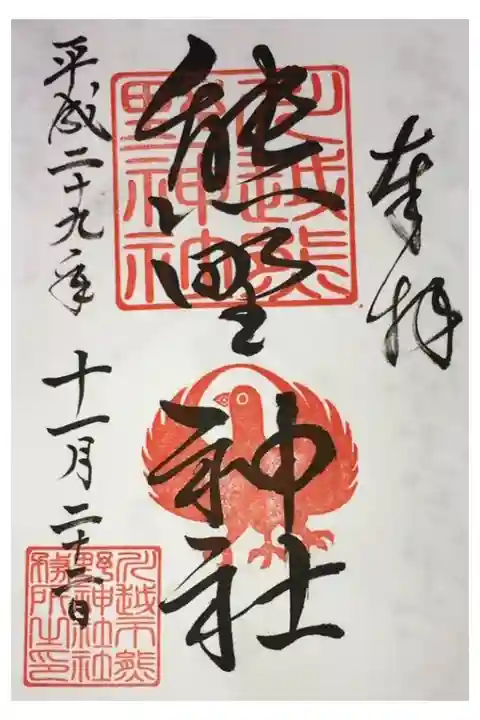 奉拝
熊野神社
川越熊野神社
平成二十九年
十一月二十三日